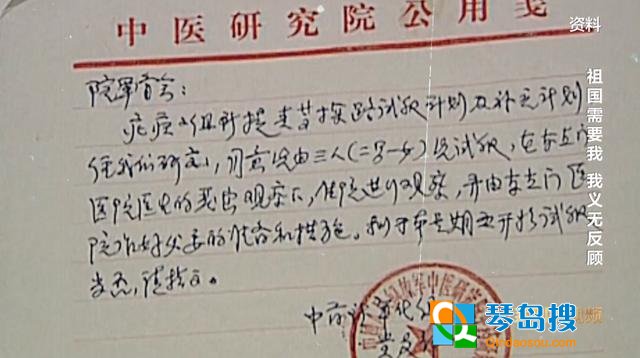 中医研究院公用笺
资料
祖国需要我 我义无反顾
院军管会：
疟疾小组所提青蒿探路试服计划及补充计划
经我们研究，同意先由三人（二男一女）先试服，在东直门
医院医生的密切观察下，住院进行观察，并由东直门医
院作好必要的准备和措施。拟于本星期五开始试服
当否，请指示。
中药
琴岛搜
Qindaosou.com